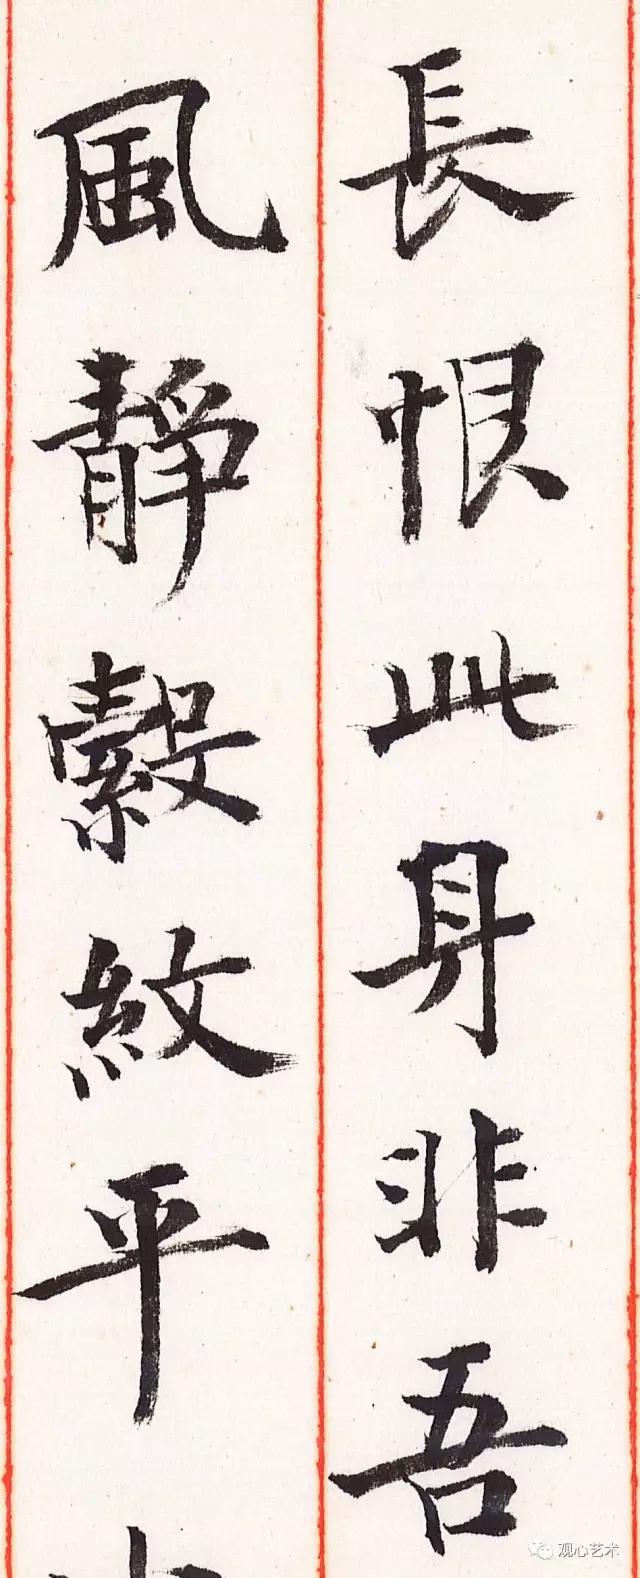 長恨此身非吾
風靜縠紋平
观心艺术